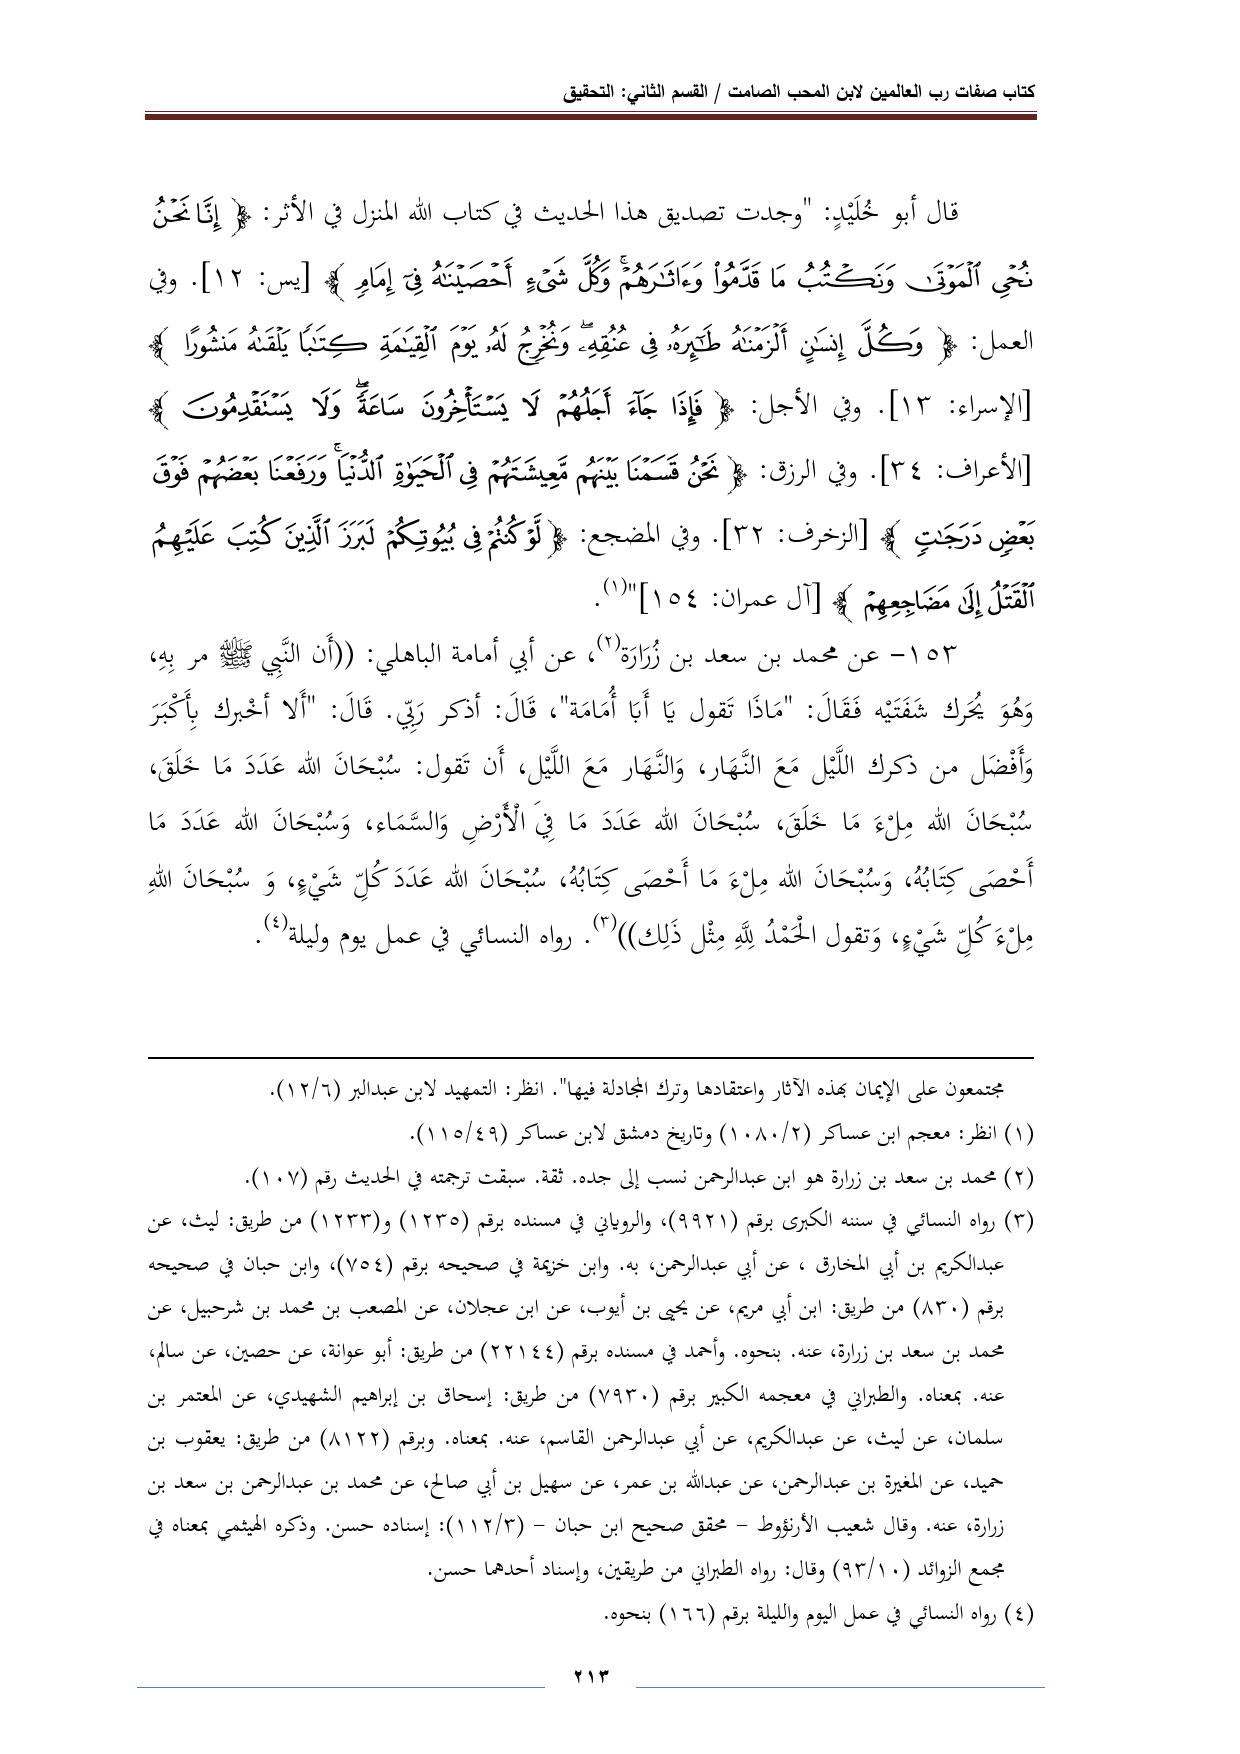 كتاب صفات رب العالمين لابن المحب الصامت / القسم الثاني: التحقيق
قال أبو خُلَيْدٍ: "وجدت تصديق هذا الحديث في كتاب الله المنزل في الأثر: ﴿ إِنَّا نَحْنُ
نُحْيِ ٱلْمَوْتَىٰ وَنَكْتُبُ مَا قَدَّمُوا۟ وَءَاثَٰرَهُمْ ۚ وَكُلَّ شَىْءٍ أَحْصَيْنَٰهُ فِىٓ إِمَامٍ ﴾ [يس: ١٢]. وفي
العمل: ﴿ وَكُلَّ إِنسَٰنٍ أَلْزَمْنَٰهُ طَٰٓئِرَهُۥ فِى عُنُقِهِۦ ۖ وَنُخْرِجُ لَهُۥ يَوْمَ ٱلْقِيَٰمَةِ كِتَٰبًا يَلْقَىٰهُ مَنشُورًا ﴾
[الإسراء: ١٣]. وفي الأجل: ﴿ فَإِذَا جَآءَ أَجَلُهُمْ لَا يَسْتَأْخِرُونَ سَاعَةً ۖ وَلَا يَسْتَقْدِمُونَ ﴾
[الأعراف: ٣٤]. وفي الرزق: ﴿ نَحْنُ قَسَمْنَا بَيْنَهُم مَّعِيشَتَهُمْ فِى ٱلْحَيَوٰةِ ٱلدُّنْيَا ۚ وَرَفَعْنَا بَعْضَهُمْ فَوْقَ
بَعْضٍ دَرَجَٰتٍ ﴾ [الزخرف: ٣٢]. وفي المضجع: ﴿ لَّوْ كُنتُمْ فِى بُيُوتِكُمْ لَبَرَزَ ٱلَّذِينَ كُتِبَ عَلَيْهِمُ
ٱلْقَتْلُ إِلَىٰ مَضَاجِعِهِمْ ﴾ [آل عمران: ١٥٤]"(١).
١٥٣- عن محمد بن سعد بن زُرَارَة(٢)، عن أبي أمامة الباهلي: ((أَن النَّبِي ﷺ مر بِهِ،
وَهُوَ يُحَرك شَفَتَيْه فَقَالَ: "مَاذَا تَقول يَا أَبَا أُمَامَة"، قَالَ: أذكر رَبِّي. قَالَ: "أَلا أخْبرك بِأَكْبَرَ
وَأَفْضَل من ذكرك اللَّيْل مَعَ النَّهَار، وَالنَّهَار مَعَ اللَّيْل، أَن تَقول: سُبْحَانَ الله عَدَدَ مَا خَلَقَ،
سُبْحَانَ الله مِلْءَ مَا خَلَقَ، سُبْحَانَ الله عَدَدَ مَا فِي الْأَرْضِ وَالسَّمَاء، وَسُبْحَانَ الله عَدَدَ مَا
أَحْصَى كِتَابُهُ، وَسُبْحَانَ الله مِلْءَ مَا أَحْصَى كِتَابُهُ، سُبْحَانَ الله عَدَدَ كُلِّ شَيْءٍ، وَ سُبْحَانَ اللهِ
مِلْءَ كُلِّ شَيْءٍ، وَتقول الْحَمْدُ لِلَّهِ مِثْل ذَلِك))(٣). رواه النسائي في عمل يوم وليلة(٤).
مجتمعون على الإيمان بهذه الآثار واعتقادها وترك المجادلة فيها". انظر: التمهيد لابن عبدالبر (١٢/٦).
(١) انظر: معجم ابن عساكر (١٠٨٠/٢) وتاريخ دمشق لابن عساكر (١١٥/٤٩).
(٢) محمد بن سعد بن زرارة هو ابن عبدالرحمن نسب إلى جده. ثقة. سبقت ترجمته في الحديث رقم (١٠٧).
(٣) رواه النسائي في سننه الكبرى برقم (٩٩٢١)، والروياني في مسنده برقم (١٢٣٥) و(١٢٣٣) من طريق: ليث، عن
عبدالكريم بن أبي المخارق ، عن أبي عبدالرحمن، به. وابن خزيمة في صحيحه برقم (٧٥٤)، وابن حبان في صحيحه
برقم (٨٣٠) من طريق: ابن أبي مريم، عن يحيى بن أيوب، عن ابن عجلان، عن المصعب بن محمد بن شرحبيل، عن
محمد بن سعد بن زرارة، عنه. بنحوه. وأحمد في مسنده برقم (٢٢١٤٤) من طريق: أبو عوانة، عن حصين، عن سالم،
عنه. بمعناه. والطبراني في معجمه الكبير برقم (٧٩٣٠) من طريق: إسحاق بن إبراهيم الشهيدي، عن المعتمر بن
سلمان، عن ليث، عن عبدالكريم، عن أبي عبدالرحمن القاسم، عنه. بمعناه. وبرقم (٨١٢٢) من طريق: يعقوب بن
حميد، عن المغيرة بن عبدالرحمن، عن عبدالله بن عمر، عن سهيل بن أبي صالح، عن محمد بن عبدالرحمن بن سعد بن
زرارة، عنه. وقال شعيب الأرنؤوط – محقق صحيح ابن حبان – (١١٢/٣): إسناده حسن. وذكره الهيثمي بمعناه في
مجمع الزوائد (٩٣/١٠) وقال: رواه الطبراني من طريقين، وإسناد أحدهما حسن.
(٤) رواه النسائي في عمل اليوم والليلة برقم (١٦٦) بنحوه.
٢١٣